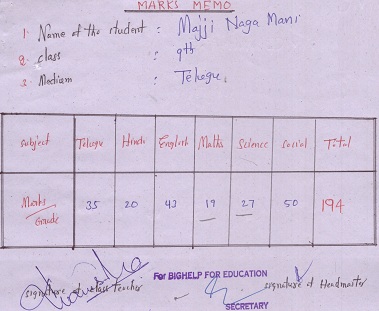 MARKS MEMO
1. Name of the student : Majji Naga Mani
2. class : 9th
3. Medium : Telugu.
Subject Telugu Hindi English Maths Science Social Total
Marks Grade 35 20 43 19 27 50 194
For BIGHELP FOR EDUCATION
signature of class teacher signature of Headmaster
SECRETARY